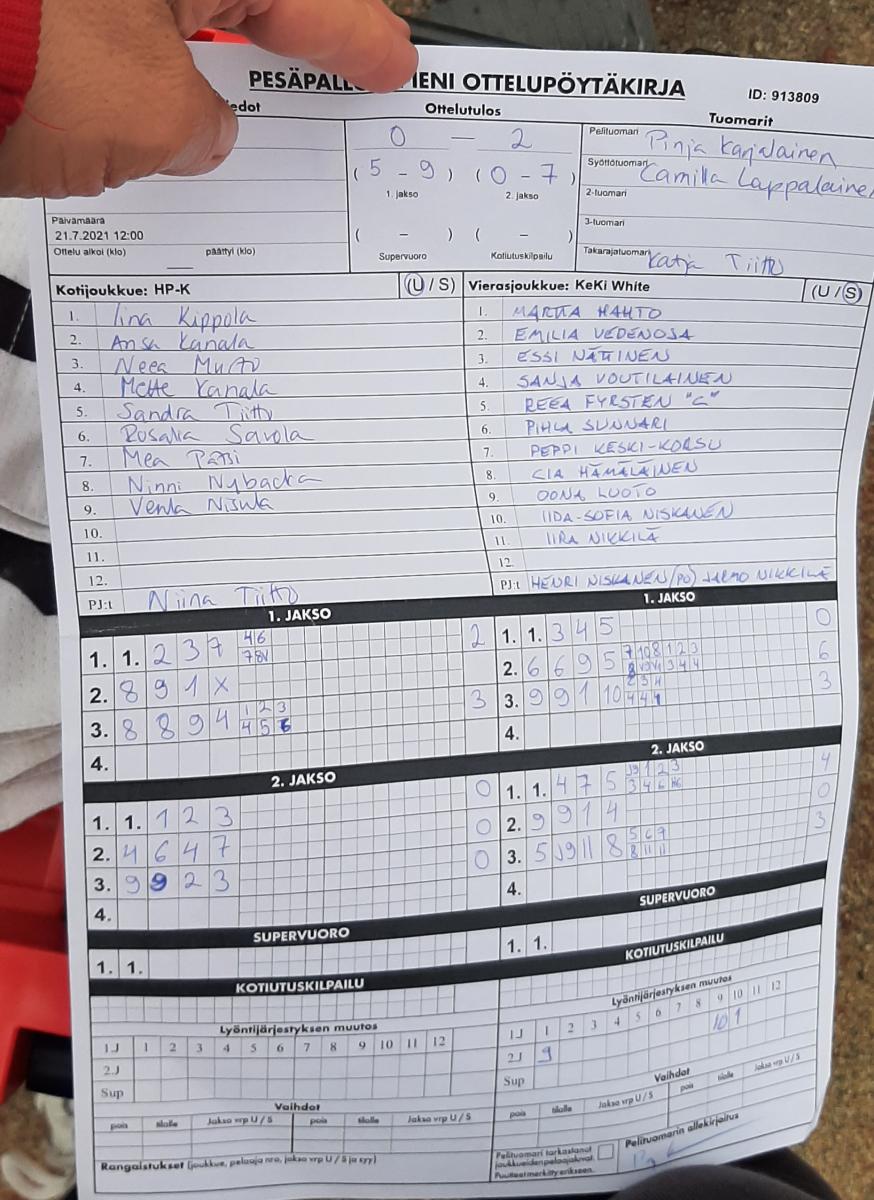 PESÄPALL IENI OTTELUPÖYTÄKIRJA
ID: 913809
edot
Ottelutulos
Tuomarit
0 — 2
(5 - 9) (0 - 7)
1. jakso 2. jakso
( - ) ( - )
Supervuoro Kotiutuskilpailu
Pelituomari Pinja Karjalainen
Syöttötuomari Camilla Lappalainen
2-tuomari
3-tuomari
Takarajatuomari Katja Tiitto
Päivämäärä
21.7.2021 12:00
Ottelu alkoi (klo) — päättyi (klo)
Kotijoukkue: HP-K (U / S)
1. Iina Kippola
2. Ansa Kanala
3. Neea Murto
4. Mette Kanala
5. Sandra Tiitto
6. Rosalia Savola
7. Mea Patsi
8. Ninni Nybacka
9. Venla Nisula
10.
11.
12.
PJ:t Niina Tiitto
Vierasjoukkue: KeKi White (U / S)
1. MARTTA HAHTO
2. EMILIA VEDENOJA
3. ESSI NÄTTINEN
4. SANJA VOUTILAINEN
5. REEA FYRSTEN "C"
6. PIHLA SUNNARI
7. PEPPI KESKI-KORSU
8. CIA HÄMÄLÄINEN
9. OONA LUOTO
10. IIDA-SOFIA NISKANEN
11. IIRA NIKKILÄ
12.
PJ:t HENRI NISKANEN/(PO) JARMO NIKKILÄ
1. JAKSO
1. 1. 2 3 7 4 6 2
7 8V
2. 8 9 1 X
3. 8 8 9 4 1 2 3 3
4 5 6
4.
1. JAKSO
1. 1. 3 4 5 0
2. 6 6 9 5 7 10 8 1 2 3 6
3. 9 9 1 10 2 3 4 3
4 4 1
4.
2. JAKSO
1. 1. 1 2 3 0
2. 4 6 4 7 0
3. 9 9 2 3 0
4.
2. JAKSO
1. 1. 4 7 5 J9 1 2 3 4
2. 9 9 1 4 0
3. 5 J9 11 8 5 6 7 3
8 11 11
4.
SUPERVUORO
1. 1.
SUPERVUORO
1. 1.
KOTIUTUSKILPAILU
KOTIUTUSKILPAILU
Lyöntijärjestyksen muutos
1J 1 2 3 4 5 6 7 8 9 10 11 12
2J
Sup
Vaihdot
pois tilalle Jakso vrp U / S pois tilalle Jakso vrp U / S
Rangaistukset (joukkue, pelaaja nro, jakso vrp U / S ja syy)
Lyöntijärjestyksen muutos
1J 1 2 3 4 5 6 7 8 9 10 11 12
2J 9 10 1
Sup
Vaihdot
pois tilalle Jakso vrp U / S pois tilalle Jakso vrp U / S
Pelituomari tarkastanut
joukkueiden pelaajaluvat.
Puutteet merkitty erikseen.
Pelituomarin allekirjoitus